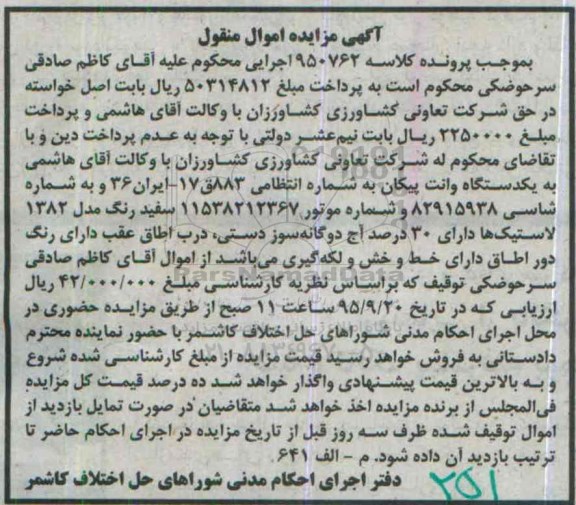 آگهی مزایده اموال منقول
بموجب پرونده کلاسه ۹۵۰۷۶۲ اجرایی محکوم علیه آقای کاظم صادقی
سرحوضکی محکوم است به پرداخت مبلغ ۵۰۳۱۴۸۱۲ ریال بابت اصل خواسته
در حق شرکت تعاونی کشاورزی کشاورزان با وکالت آقای هاشمی و پرداخت
مبلغ ۲۲۵۰۰۰۰ ریال بابت نیم‌عشر دولتی با توجه به عدم پرداخت دین و با
تقاضای محکوم له شرکت تعاونی کشاورزی کشاورزان با وکالت آقای هاشمی
به یکدستگاه وانت پیکان به شماره انتظامی ۸۸۳ق۱۷-ایران۳۶ و به شماره
شاسی ۸۲۹۱۵۹۳۸ و شماره موتور ۱۱۵۳۸۲۱۲۳۶۷ سفید رنگ مدل ۱۳۸۲
لاستیک‌ها دارای ۳۰ درصد آج دوگانه‌سوز دستی، درب اطاق عقب دارای رنگ
دور اطاق دارای خط و خش و لکه‌گیری می‌باشد از اموال آقای کاظم صادقی
سرحوضکی توقیف که براساس نظریه کارشناسی مبلغ ۴۲/۰۰۰/۰۰۰ ریال
ارزیابی که در تاریخ ۹۵/۹/۲۰ ساعت ۱۱ صبح از طریق مزایده حضوری در
محل اجرای احکام مدنی شوراهای حل اختلاف کاشمر با حضور نماینده محترم
دادستانی به فروش خواهد رسید قیمت مزایده از مبلغ کارشناسی شده شروع
و به بالاترین قیمت پیشنهادی واگذار خواهد شد ده درصد قیمت کل مزایده
فی‌المجلس از برنده مزایده اخذ خواهد شد متقاضیان در صورت تمایل بازدید از
اموال توقیف شده ظرف سه روز قبل از تاریخ مزایده در اجرای احکام حاضر تا
ترتیب بازدید آن داده شود. م - الف ۶۴۱
دفتر اجرای احکام مدنی شوراهای حل اختلاف کاشمر
۲۵۱
ParsNamadData